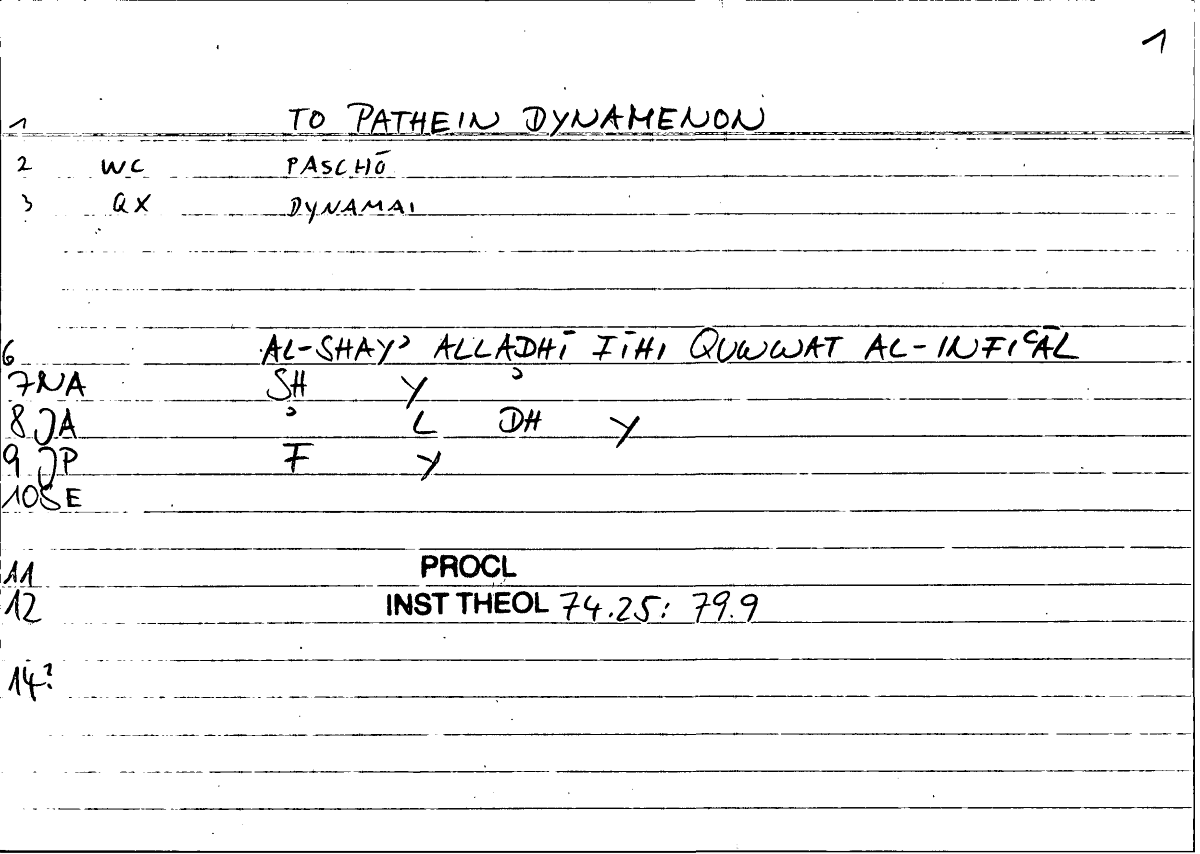 1
1 TO PATHEIN DYNAMENON
2 WC PASCHŌ
3 QX DYNAMAI
6 AL-SHAYʾ ALLADHĪ FĪHI QUWWAT AL-INFIʿĀL
7 NA SH Y ʾ
8 JA ʾ L DH Y
9 JP F Y
10 SE
11 PROCL
12 INST THEOL 74.25: 79.9
14?